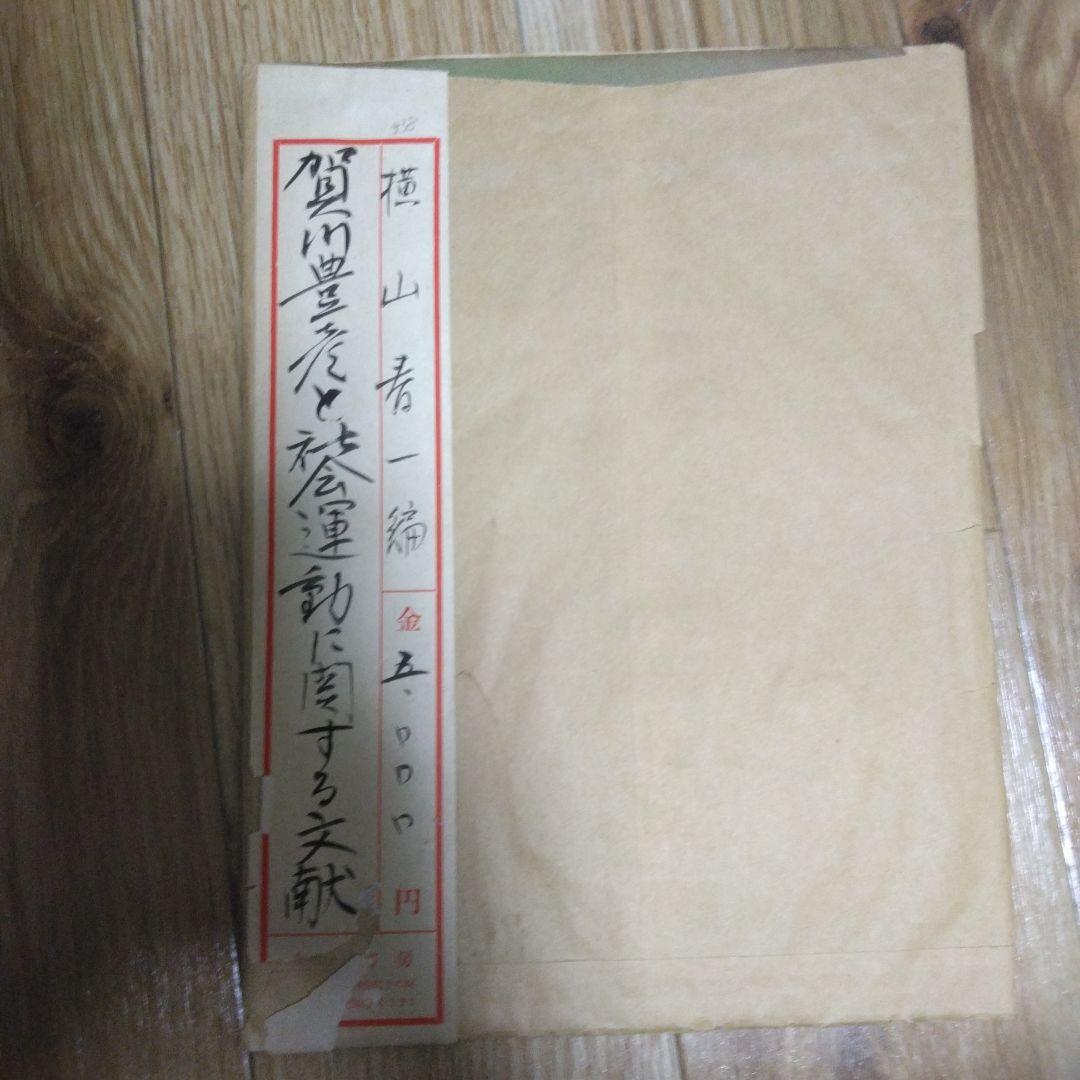 賀川豊彦と社会運動に関する文献
横山春一編
金 五、〇〇〇 円
房